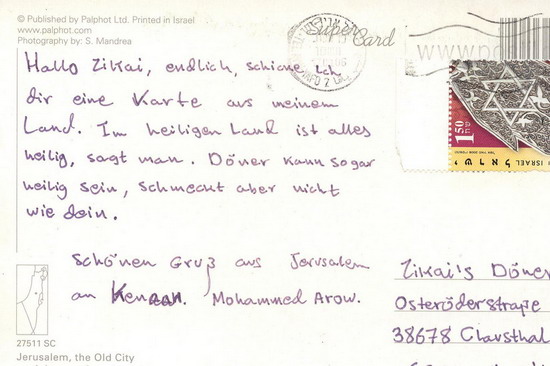 © Published by Palphot Ltd. Printed in Israel
www.palphot.com
Photography by: S. Mandrea
Super
Card
www.p
Hallo Zikai, endlich, schicke Ich
dir eine Karte aus meinem
Land. Im heiligen Land ist alles
heilig, sagt man. Döner kann sogar
heilig sein, schmeckt aber nicht
wie dein.
Schönen Gruß aus Jerusalem
an Kenan. Mohammed Arow.
1.50
ISRAEL ישראל
Zikai's Döner
Osteröderstraße
38678 Clausthal
27511 SC
Jerusalem, the Old City